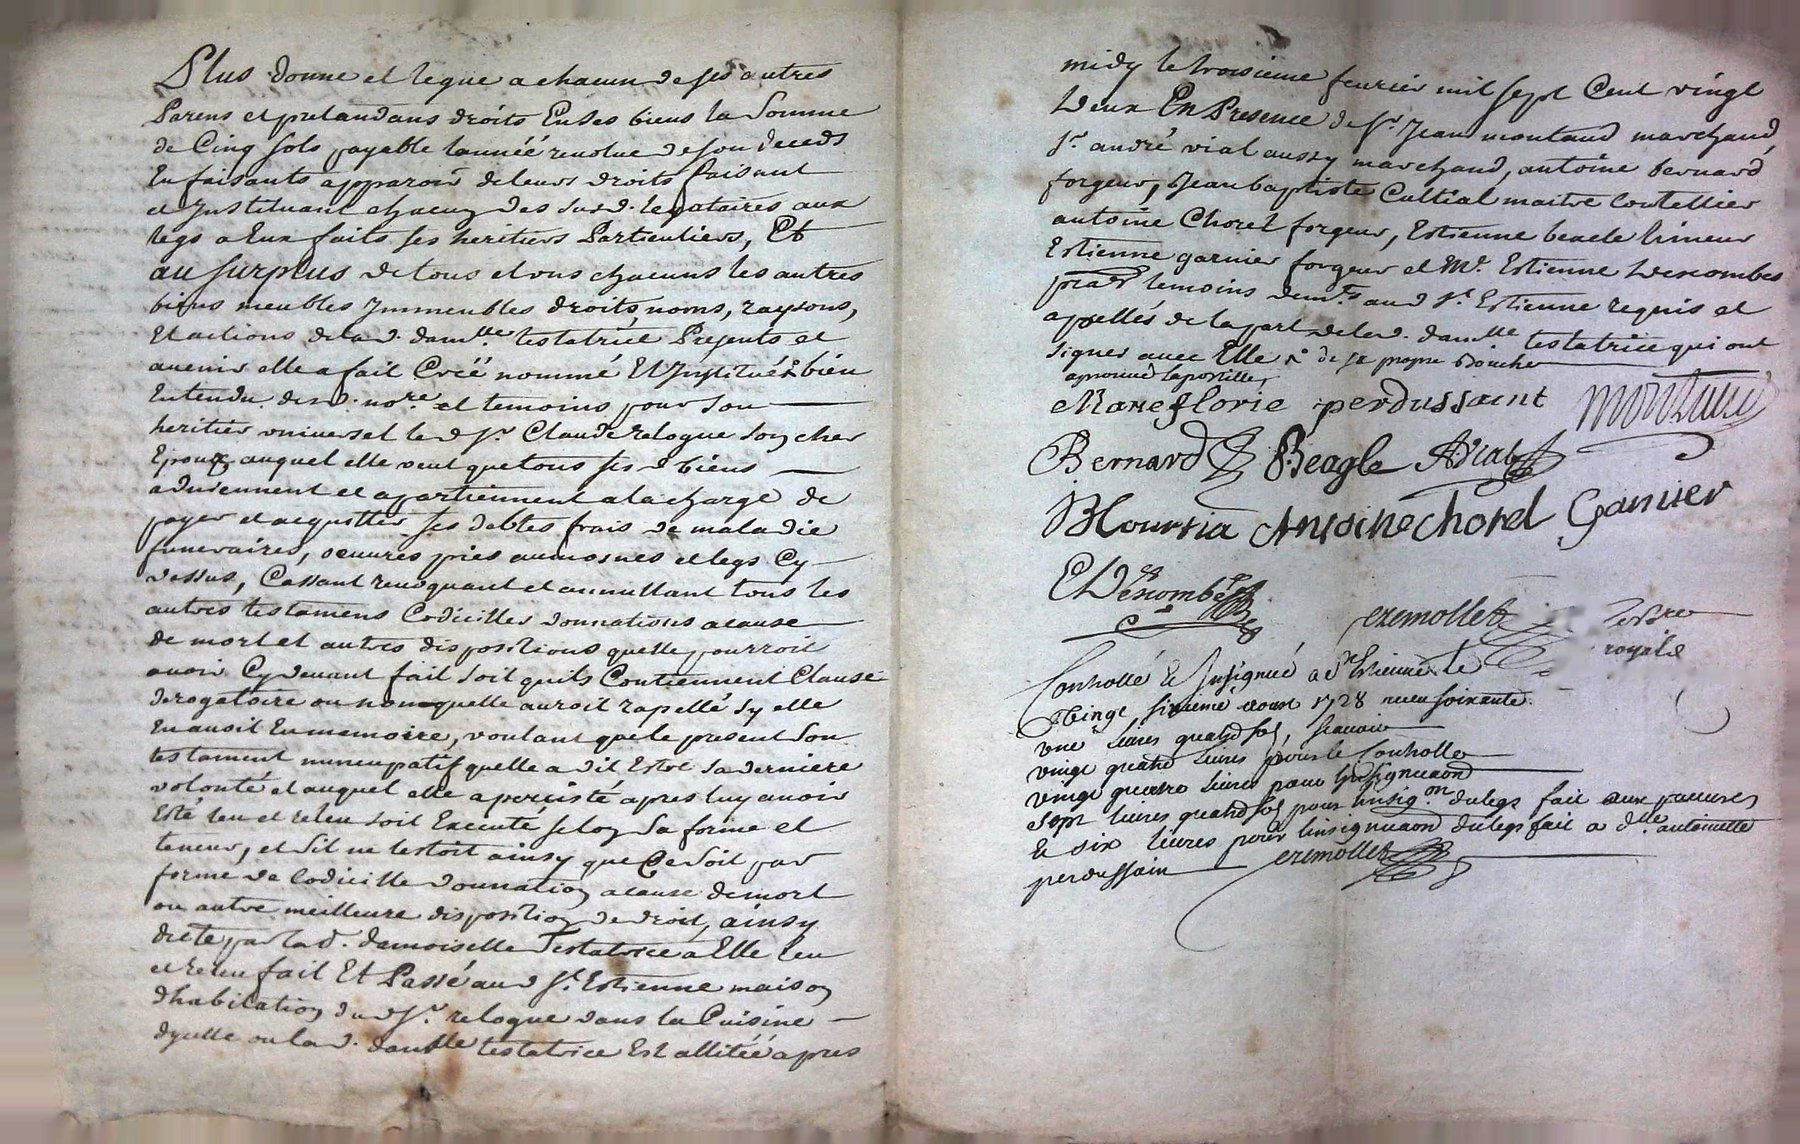 Plus donne et legue a chacun de ses autres
Parens et pretandans droits En ses biens la Somme
de Cinq sols payable lannéé revolue de son deceds
En faisants apparoir de leurs droits faisant
et Instituant chacun des susd. legataires aux
legs a Eux faits ses heritiers Particuliers, Et
au surplus de tous et uns chacuns les autres
biens meubles Immeubles droits, noms, raysons,
Et actions de lad. dam.lle testatrice Presents et
avenir elle a fait Créé nommé Et Institué bién
Entendu desd. no.re et temoins pour son
heritier universel led. Sr. Claude relogue son cher
Epoux auquel elle veut que tous ses d. biens
adviennent et apartiennent a la charge de
payer et acquitter ses debtes frais de maladie
funeraires, oeuvres pies aumosnes et legs Cy
dessus, Cassant revoquant et annullant tous les
autres testamens Codicilles donnations a cause
de mort et autres dispositions quelle pourroit
avoir Cy devant fait soit quils Contiennent Clause
derogatoire ou non quelle auroit rapellé sy elle
En avoit En memoire, voulant que le present son
testament nuncupatif quelle a dit Estre sa derniere
volonté et auquel elle a percisté apres luy avoir
Esté leu et releu soit Executé selon sa forme et
teneur, et sil ne testoit ainsy que Ce soit par
forme de Codicille donnation a cause de mort
ou autre meilleure disposition de droit, ainsy
dicte par lad. damoiselle Testatrice a Elle leu
et releu fait Et Passé aud St. Estienne maison
dhabitation dud Sr. relogue dans la Cuisine
dycelle ou lad. damlle testatrice Est allitéé apres
midy le troisieme fevrier mil sept Cent vingt
deux En Presence de Sr. Jean montaud marchand,
Sr. andré vial aussy marchand, antoine bernard
forgeur, Jean baptiste Cultial maitre Coutellier
antoine Chorel forgeur, Estienne beacle limeur
Estienne garnier forgeur et Me. Estienne descombes
prat. temoins demts. aud St. Estienne requis et
appellés de la part de lad. damlle testatrice qui ont
signes avec Elle de sa propre bouche
aprouvé lapostille,
Marie florie perdussaint montaud
Bernard Beagle AVial
Antoine chorel Garnier
E Descombes
ezemollet notre
royale
Controllé & Insignué a St Estienne le
vingt sixieme aoust 1728 receu soixante
une livres quatre sol, scavoir
vingt quatre livres pour le Controlle
vingt quatre livres pour Linsignuaon
sept livres quatre sol pour linsig.on du legs fait aux pauvres
& six livres pour linsignuaon du legs fait a dlle. antoinette
perdussain ezemollet